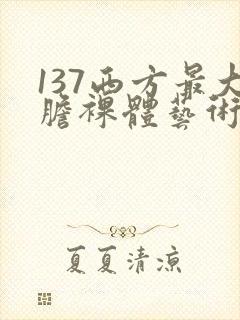 137西方最大
膽裸體藝術
夏夏清涼